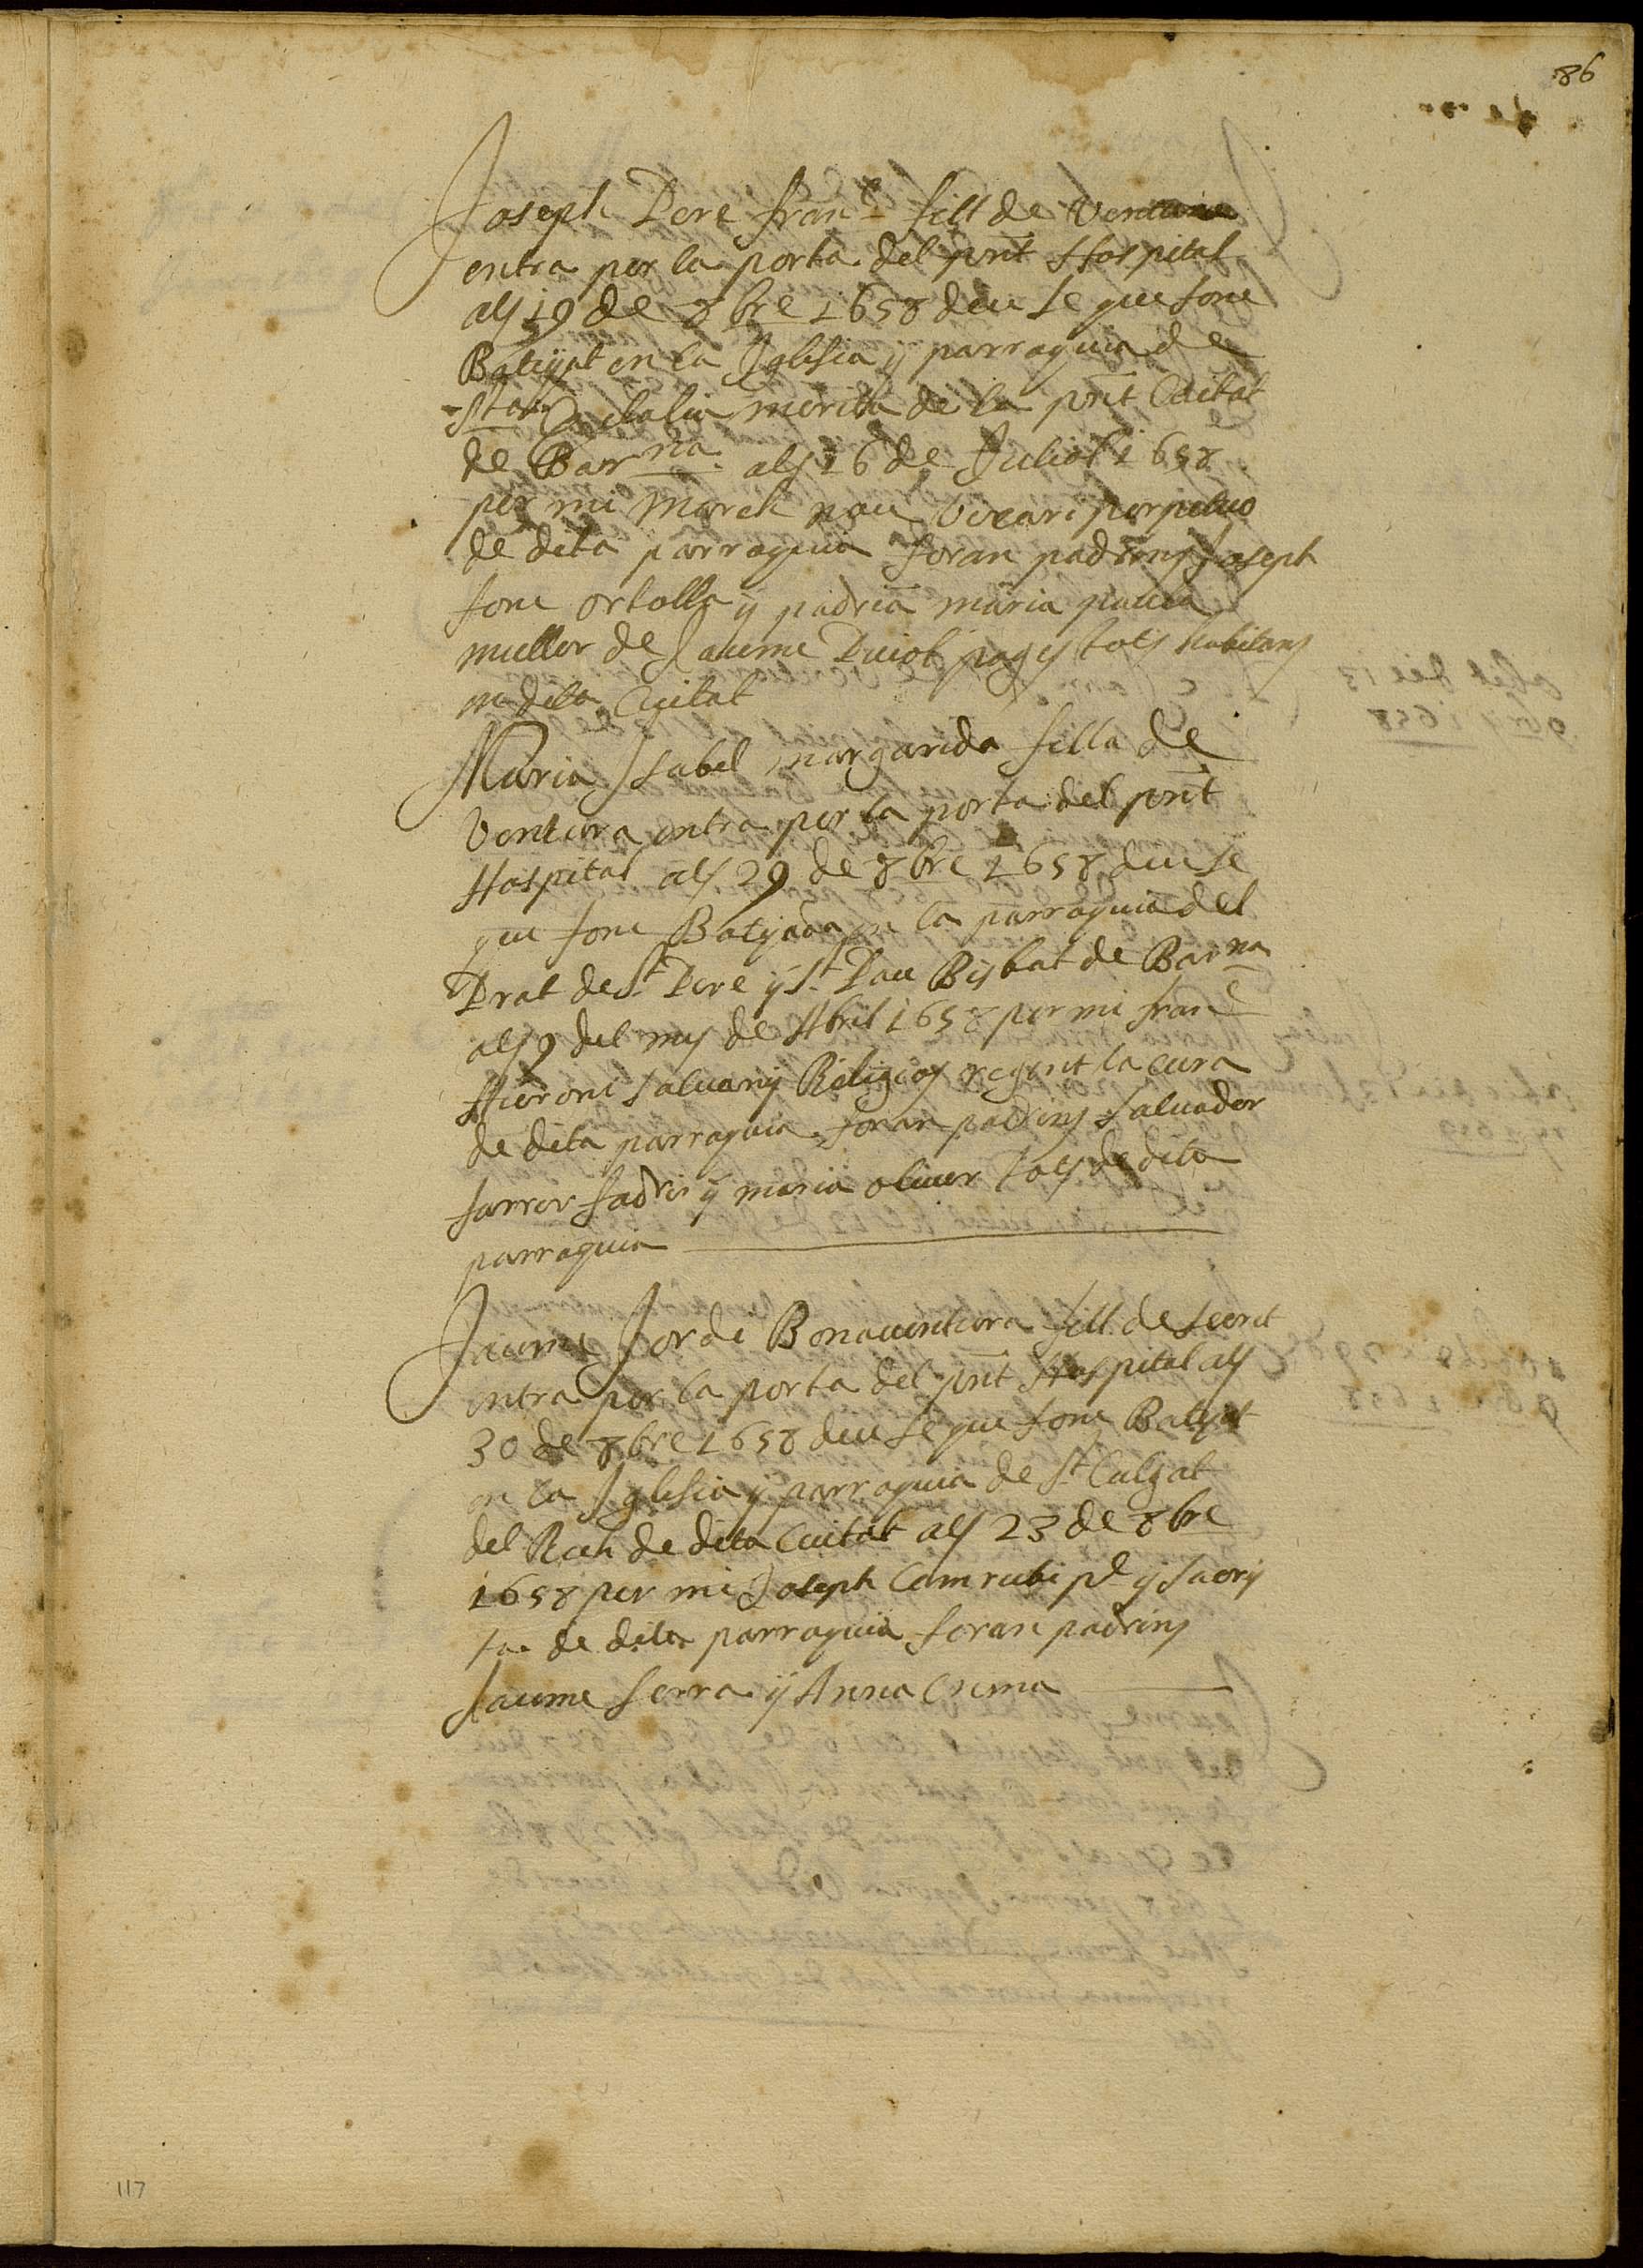 86
Joseph Pere fran.ch fill de Ventura
entra per la porta del pnt Hospital
als 19 de 8bre 1658 diu se que fonc
Batejat en la Iglesia ÿ parraquia de
sta Eulalia merida de la pnt Ciutat
de Barna als 16 de Juliol 1658
per mi March pau Vicari perpetuo
de dita parraquia foran padrins Joseph
fone ortolla ÿ padrina maria paula
muller de Jaume Puiol pages tots habitans
en dita Ciutat
Maria Isabel margarida filla de
Ventura entra per la porta del pnt
Hospital als 29 de 8bre 1658 diu se
que fonc Batejada en la parraquia del
Prat de St Pere ÿ St Pau Bisbat de Barna
als 9 del mes de Abril 1658 per mi franc
Hieroni saluany Religios regent la cura
de dita parraquia foran padrins saluador
farrer fadri ÿ maria oliuer tots de dita
parraquia
Jaume Jordi Bonauentura fill de secret
entra per la porta del pnt Hospital als
30 de 8bre 1658 diu se que fonc Batejat
en la Iglesia ÿ parraquia de St Culgat
del Rech de dita Ciutat als 23 de 8bre
1658 per mi Joseph Camrubi pe ÿ sacris
ta de dita parraquia foran padrins
Jaume serra ÿ Anna Crema
117